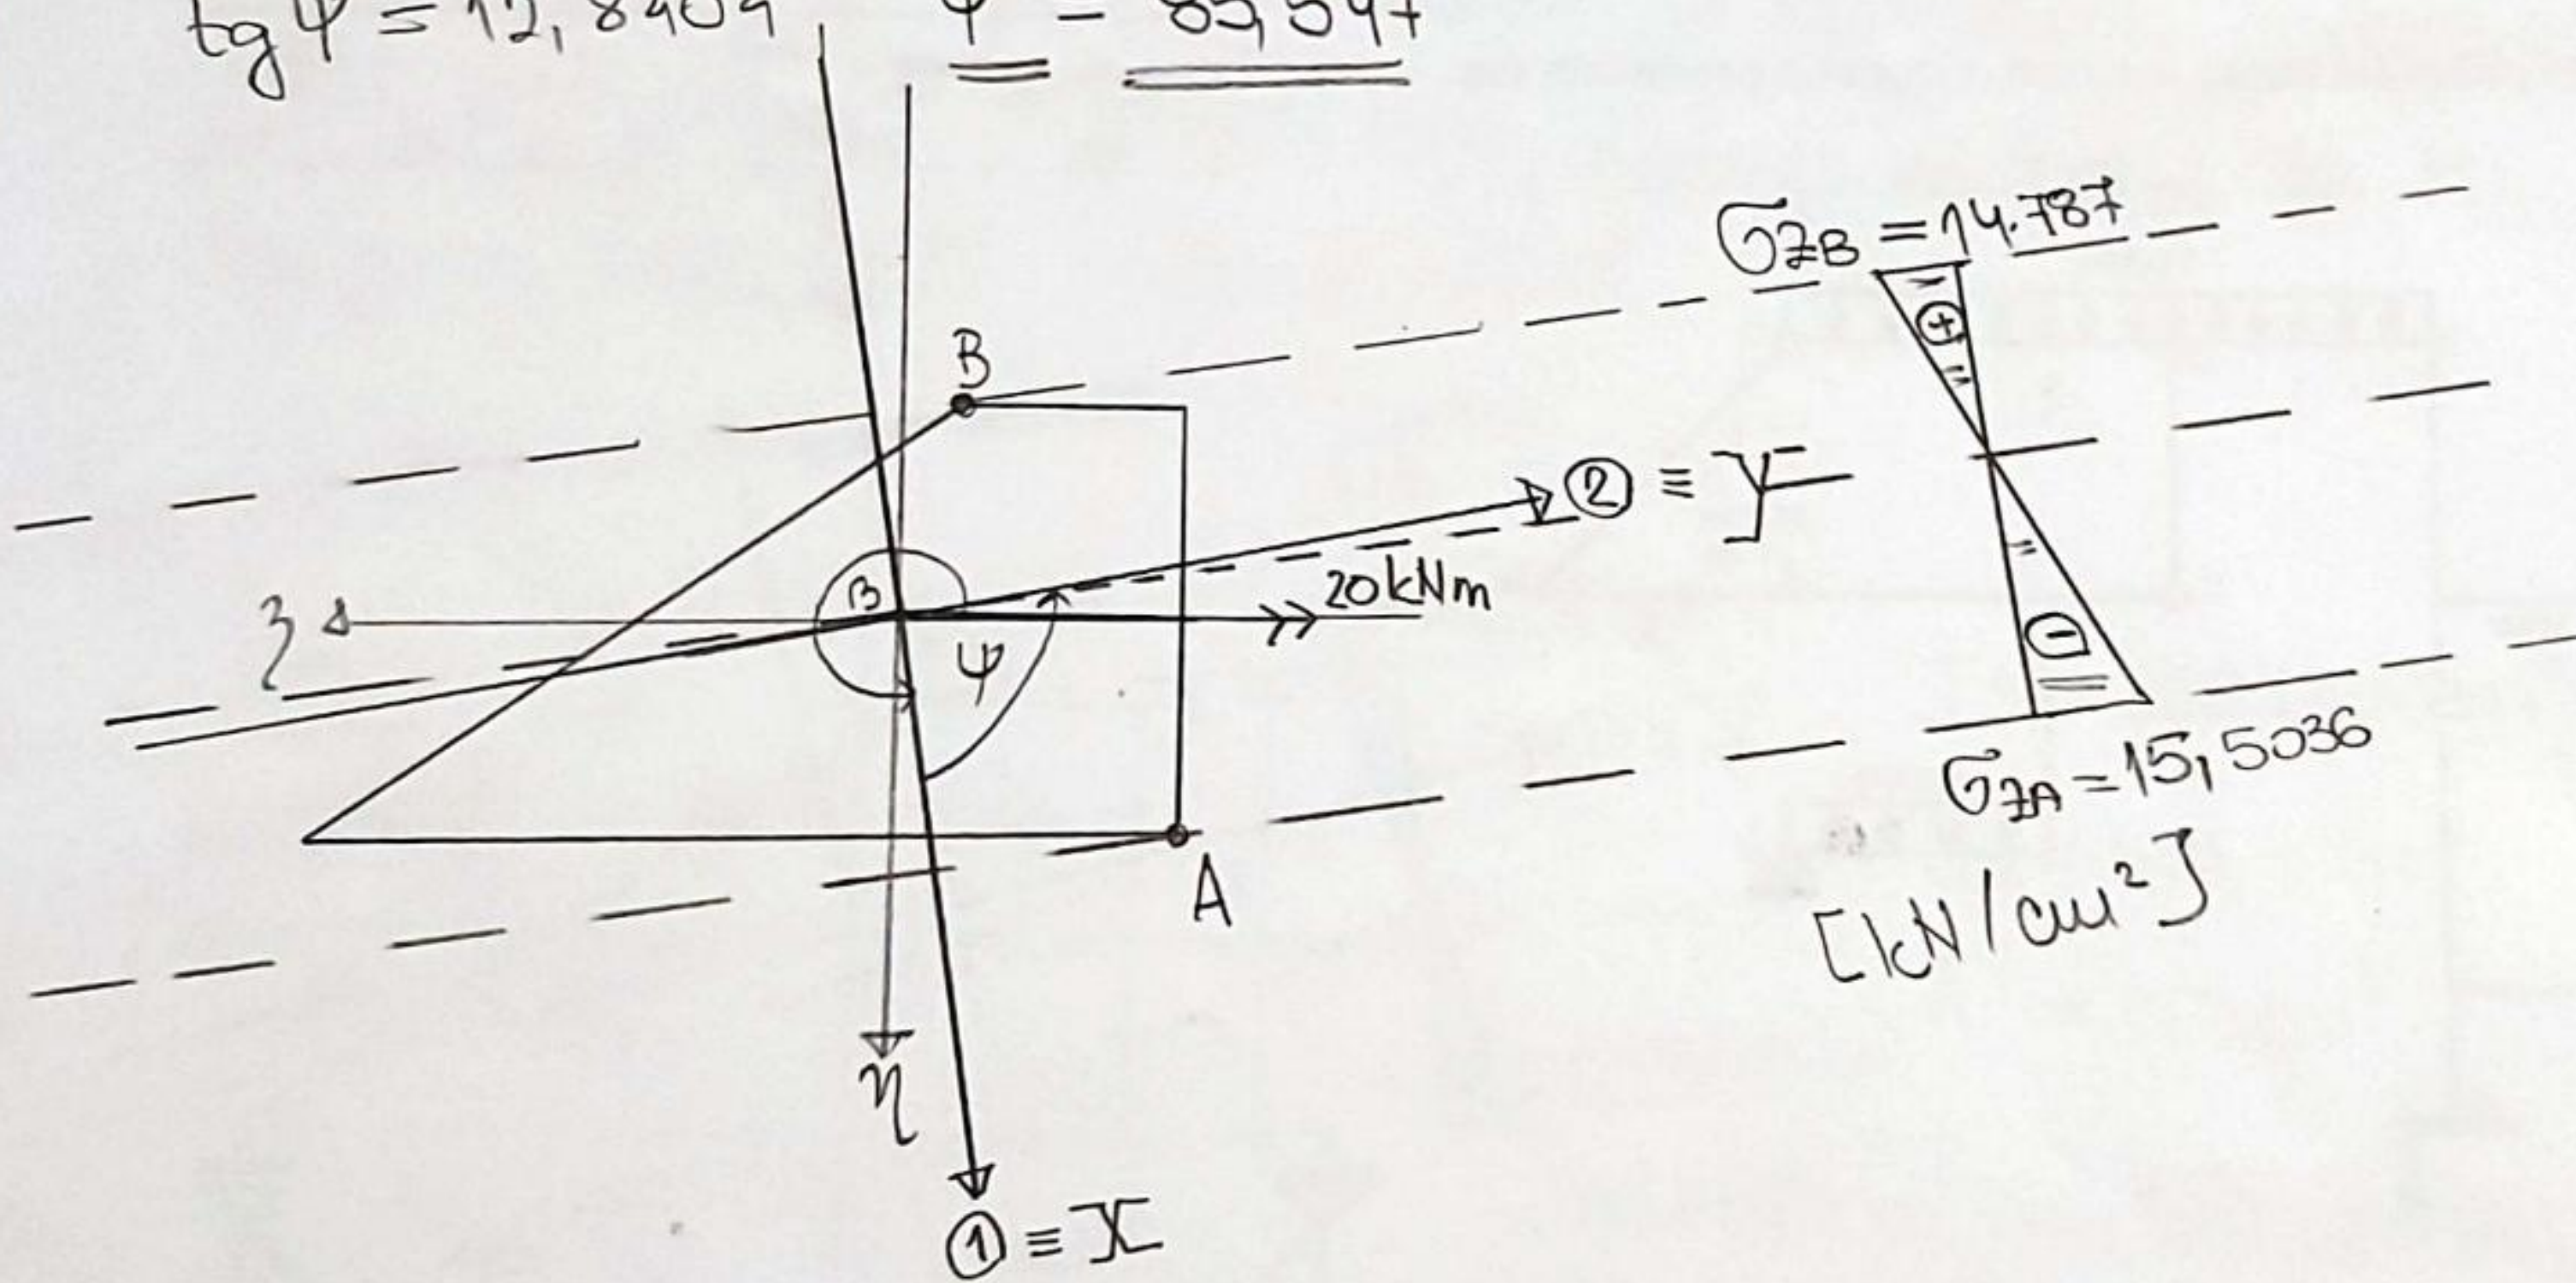 tg ψ = 12,8404 ψ = 85,547
σzB = 14.787
⊕
B
② ≡ y
20 kNm
β
ξ
ψ
⊖
σzA = 15,5036
[kN/cm²]
A
η
① ≡ x